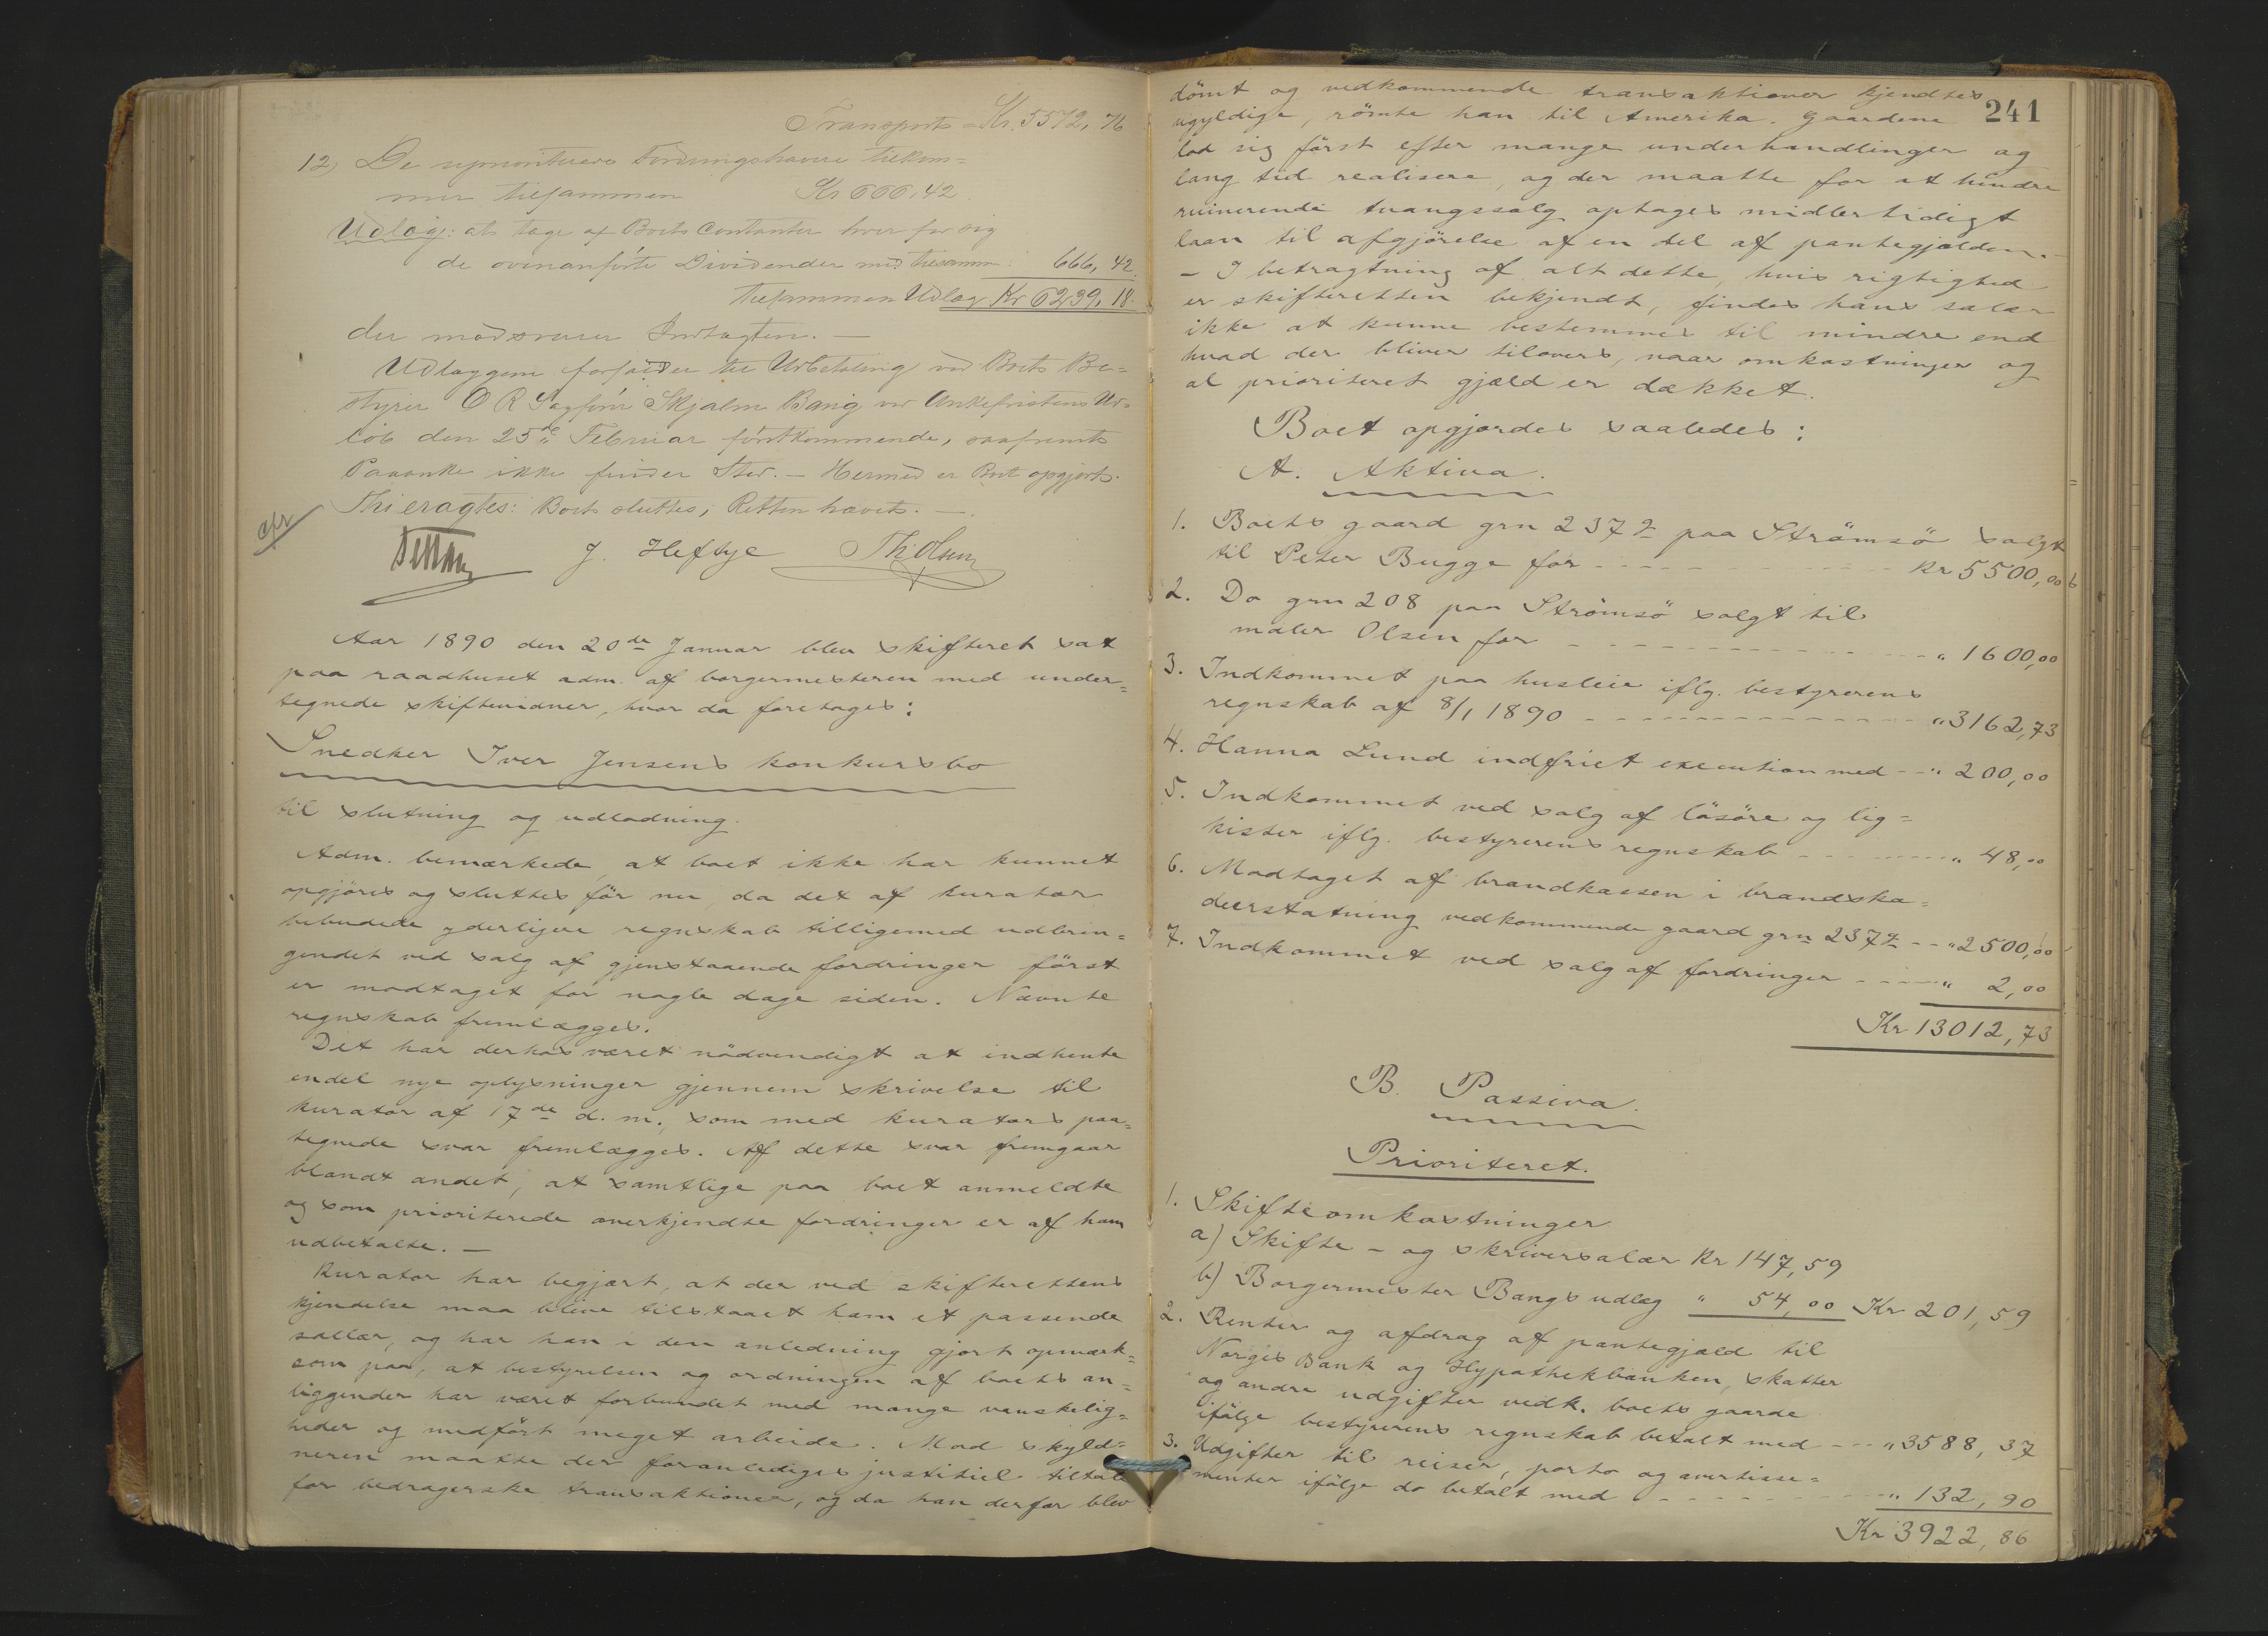 Transport Kr. 5572,76
12) De uprioriterede Fordringshavere tilkom=
mer tilsammen Kr 666,42
Udlæg: at tage af Boets Contanter hver for sig
de ovenanførte Dividender med tilsamm. 666,42
tilsammen Udlæg Kr 6239,18
der modsvarer Indtægten. —
Udlæggene forfalder til Udbetaling ved Boets Be=
styrer O R Sagfører Skjalm Bang ved Ankefristens Ud=
løb den 25de Februar førstkommende, saafremt
Paaanke ikke finder Sted. — Hermed er Boet opgjort.
Thi eragtes: Boet sluttes; Retten hævet. —
J. Heftye Th. Olsen
Aar 1890 den 20de Januar blev skifteret sat
paa raadhuset adm. af borgermesteren med under=
tegnede skiftevidner, hvor da foretoges:
Snedker Iver Jensens konkursbo
til slutning og udlodning.
Adm. bemærkede, at boet ikke har kunnet
opgjöres og sluttes för nu, da det af kurator
bebudede yderligere regnskab tilligemed udbrin=
gendet ved salg af gjenstaaende fordringer först
er modtaget for nogle dage siden. Nævnte
regnskab fremlægges.
Det har derhos været nödvendigt at indhente
endel nye oplysninger gjennem skrivelse til
kurator af 17de d. m., som med kurators paa=
tegnede svar fremlægges. Af dette svar fremgaar
blandt andet, at samtlige paa boet anmeldte
og som prioriterede anerkjendte fordringer er af ham
udbetalte. —
Kurator har begjært, at der ved skifterettens
kjendelse maa blive tilstaaet ham et passende
sallær, og har han i den anledning gjort opmærk=
som paa, at bestyrelsen og ordningen af boets an=
liggender har været forbundet med mange vanskelig=
heder og medfört meget arbeide. Mod skyld=
neren maatte der foranlediges justitiel tiltale
for bedragerske transaktioner, og da han derfor blev
241
dömt og vedkommende transaktioner kjendtes
ugyldige, römte han til Amerika. Gaardene
lod sig först efter mange underhandlinger og
lang tid realisere, og der maatte for at hindre
ruinerende tvangssalg optages midlertidigt
laan til afgjörelse af en del af pantegjælden.
– I betragtning af alt dette, hvis rigtighed
er skifteretten bekjendt, findes hans salær
ikke at kunne bestemmes til mindre end
hvad der bliver tilovers, naar omkostninger og
al prioriteret gjæld er dækket.
Boet opgjordes saaledes:
A. Aktiva.
1. Boets gaard grn 237a paa Strömsö solgt
til Peter Bugge for Kr 5500,00
2. Do grn 208 paa Strömsö solgt til
maler Olsen for " 1600,00
3. Indkommet paa husleie iflg. bestyrerens
regnskab af 8/1 1890 " 3162,73
4. Hanna Lund indfriet execution med " 200,00
5. Indkommet ved salg af lösöre og lig=
kister iflg. bestyrerens regnskab " 48,00
6. Modtaget af brandkassen i brandska=
deerstatning vedkommende gaard grn 237a " 2500,00
7. Indkommet ved salg af fordringer " 2,00
Kr 13012,73
B. Passiva.
Prioriteret.
1. Skifteomkostninger
a) Skifte- og skriversalær Kr 147,59
b) Borgermester Bangs udlæg " 54,00 Kr 201,59
2. Renter og afdrag af pantegjæld til
Norges Bank og Hypothekbanken, skatter
og andre udgifter vedk. boets gaarde
ifölge bestyrerens regnskab betalt med " 3588,37
3. Udgifter til reiser, porto og avertisse=
menter ifölge do betalt med " 132,90
Kr 3922,86